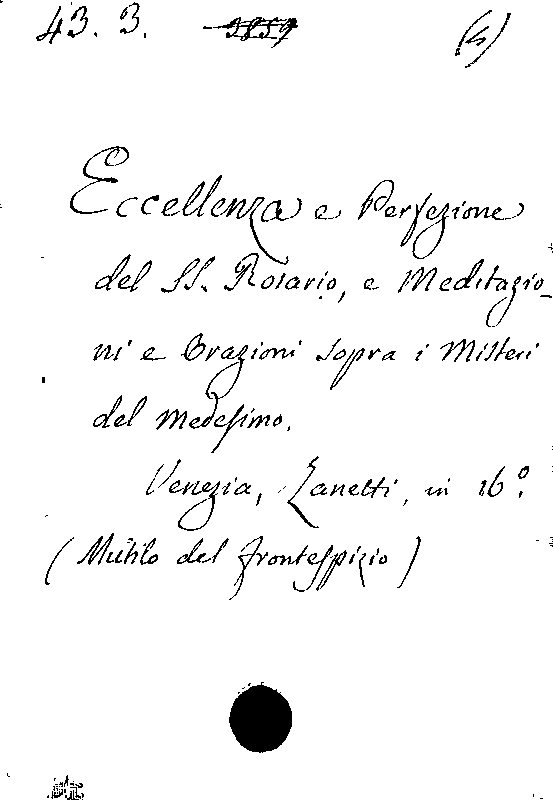 43. 3. 3859 (S)
Eccellenza e Perfezione
del SS. Rosario, e Meditazio-
ni e Orazioni sopra i Misteri
del Medesimo.
Venezia, Zanetti, in 16º.
(Mutilo del frontespizio)